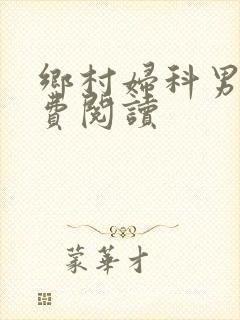 鄉村婦科男
費閱讀
蒙華才